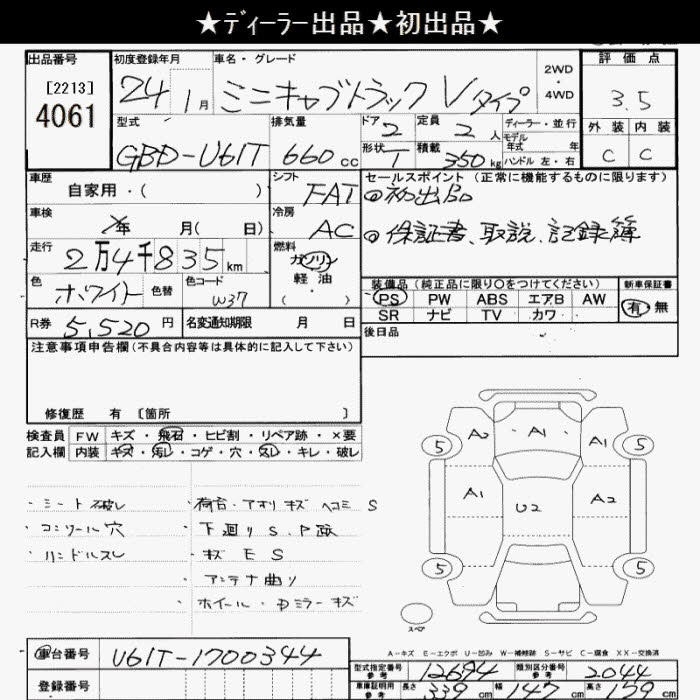 ★ディーラー出品★初出品★
出品番号 初度登録年月 車名・グレード 評価点
[2213]
4061
24 1月 ミニキャブトラック Vタイプ 2WD・4WD 3.5
型式 排気量 ドア 定員 ディーラー・並行 外装 内装
2 2人 モデル年式 年
GBD-U61T 660cc 形状 1 積載 350kg ハンドル 左・右 C C
車歴 自家用・( ) シフト FAT セールスポイント (正常に機能するものに限ります)
◎初出品
車検 年 月( 日) 冷房 AC
◎保証書、取説、記録簿
走行 2万4千835km 燃料 ガソリン 軽油 ・ ( )
色 ホワイト 色替 色コード W37
装備品 (純正品に限り○をつけてください) 新車保証書
PS PW ABS エアB AW 有 無
SR ナビ TV カワ
R券 5,520円 名変通知期限 月 日
後日品
注意事項申告欄 (不具合内容等は具体的に記入して下さい)
修復歴 有 〔箇所 〕
検査員 FW キズ・飛石・ヒビ割・リペア跡・×要
記入欄 内装 キズ・汚し・コゲ・穴・スレ・キレ・破レ
A2 A1 A1
5 5
A1 U2 A2
5 5
スペア
・シート破レ ・荷台・アオリキズ ヘコミ S
・コンソール穴 ・下廻りS、P跡
・ハンドルスレ ・キズ E S
・アンテナ曲り
・ホイール・Dミラーキズ
A-キズ E-エクボ U-凹み W-補修跡 S-サビ C-腐食 XX-交換済
車台番号 U61T-1700344
登録番号
型式指定番号 参考 12694 類別区分番号 参考 2044
車庫証明用 参考 長さ 339cm 幅 147cm 高さ 179cm